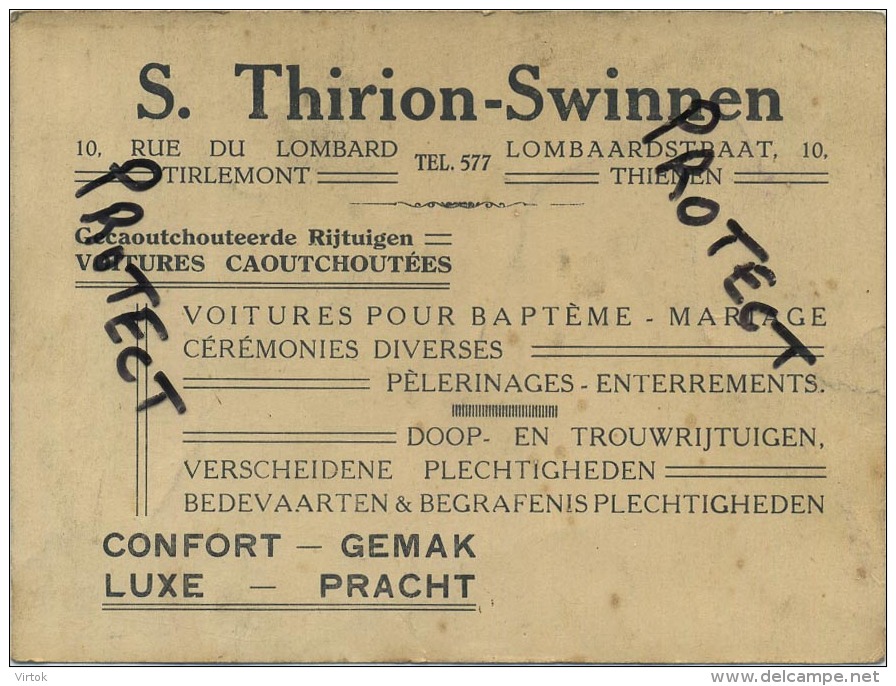 S. Thirion-Swinnen
10, RUE DU LOMBARD TEL. 577 LOMBAARDSTRAAT, 10,
TIRLEMONT THIENEN
Gecaoutchouteerde Rijtuigen
VOITURES CAOUTCHOUTÉES
VOITURES POUR BAPTÈME - MARIAGE
CÉRÉMONIES DIVERSES
PÈLERINAGES - ENTERREMENTS.
DOOP- EN TROUWRIJTUIGEN,
VERSCHEIDENE PLECHTIGHEDEN
BEDEVAARTEN & BEGRAFENISPLECHTIGHEDEN
CONFORT — GEMAK
LUXE — PRACHT
PROTECT
PROTECT
Virtok
www.delcampe.net